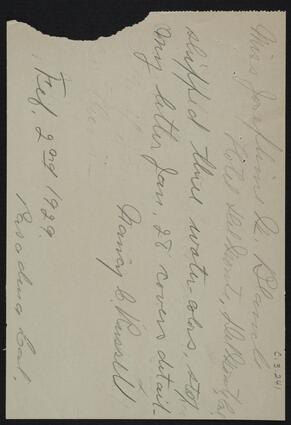 Miss Josephine M. Blanch
Hotel Del Monte, Del Monte, Ca.
shipped three watercolors, stop
my letter Jan. 28 covers detail-
Nancy C. Russell
Feb. 2nd 1929.
Pasadena Cal.
C.3.241